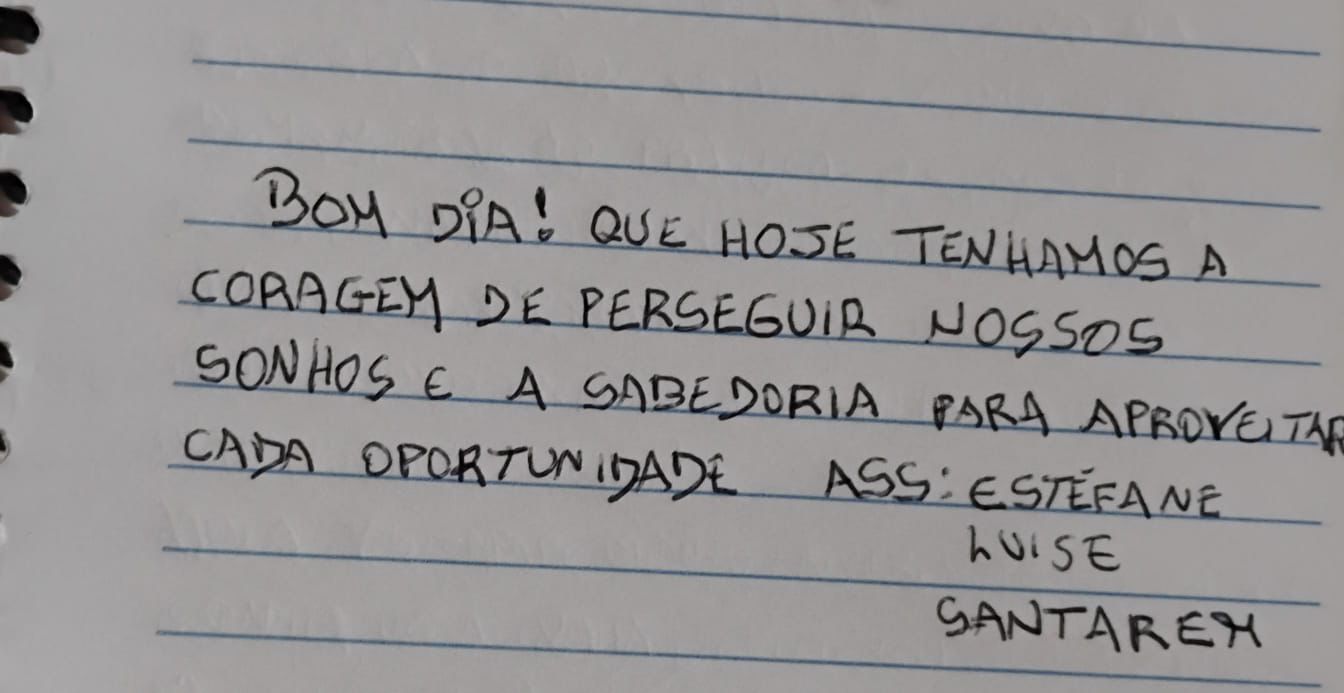 BOM DIA! QUE HOJE TENHAMOS A
CORAGEM DE PERSEGUIR NOSSOS
SONHOS E A SABEDORIA PARA APROVEITAR
CADA OPORTUNIDADE ASS: ESTÉFANE
LUISE
SANTAREM